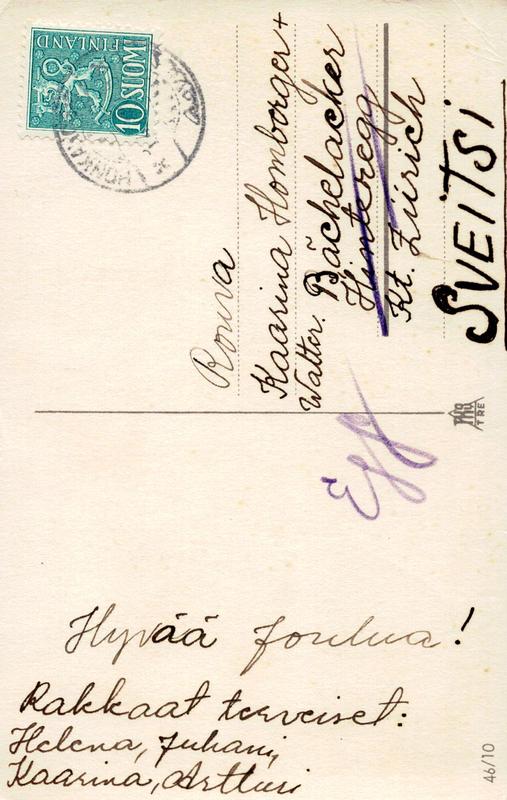 Hyvää Joulua!
Rakkaat terveiset:
Helena, Juhani,
Kaarina, Artturi
Rouva
Kaarina Homberger +
Walter. Bächelacker
Hinteregg
Kt. Zürich
SVEITSI
Egg
10 SUOMI
FINLAND
TRE
46/10